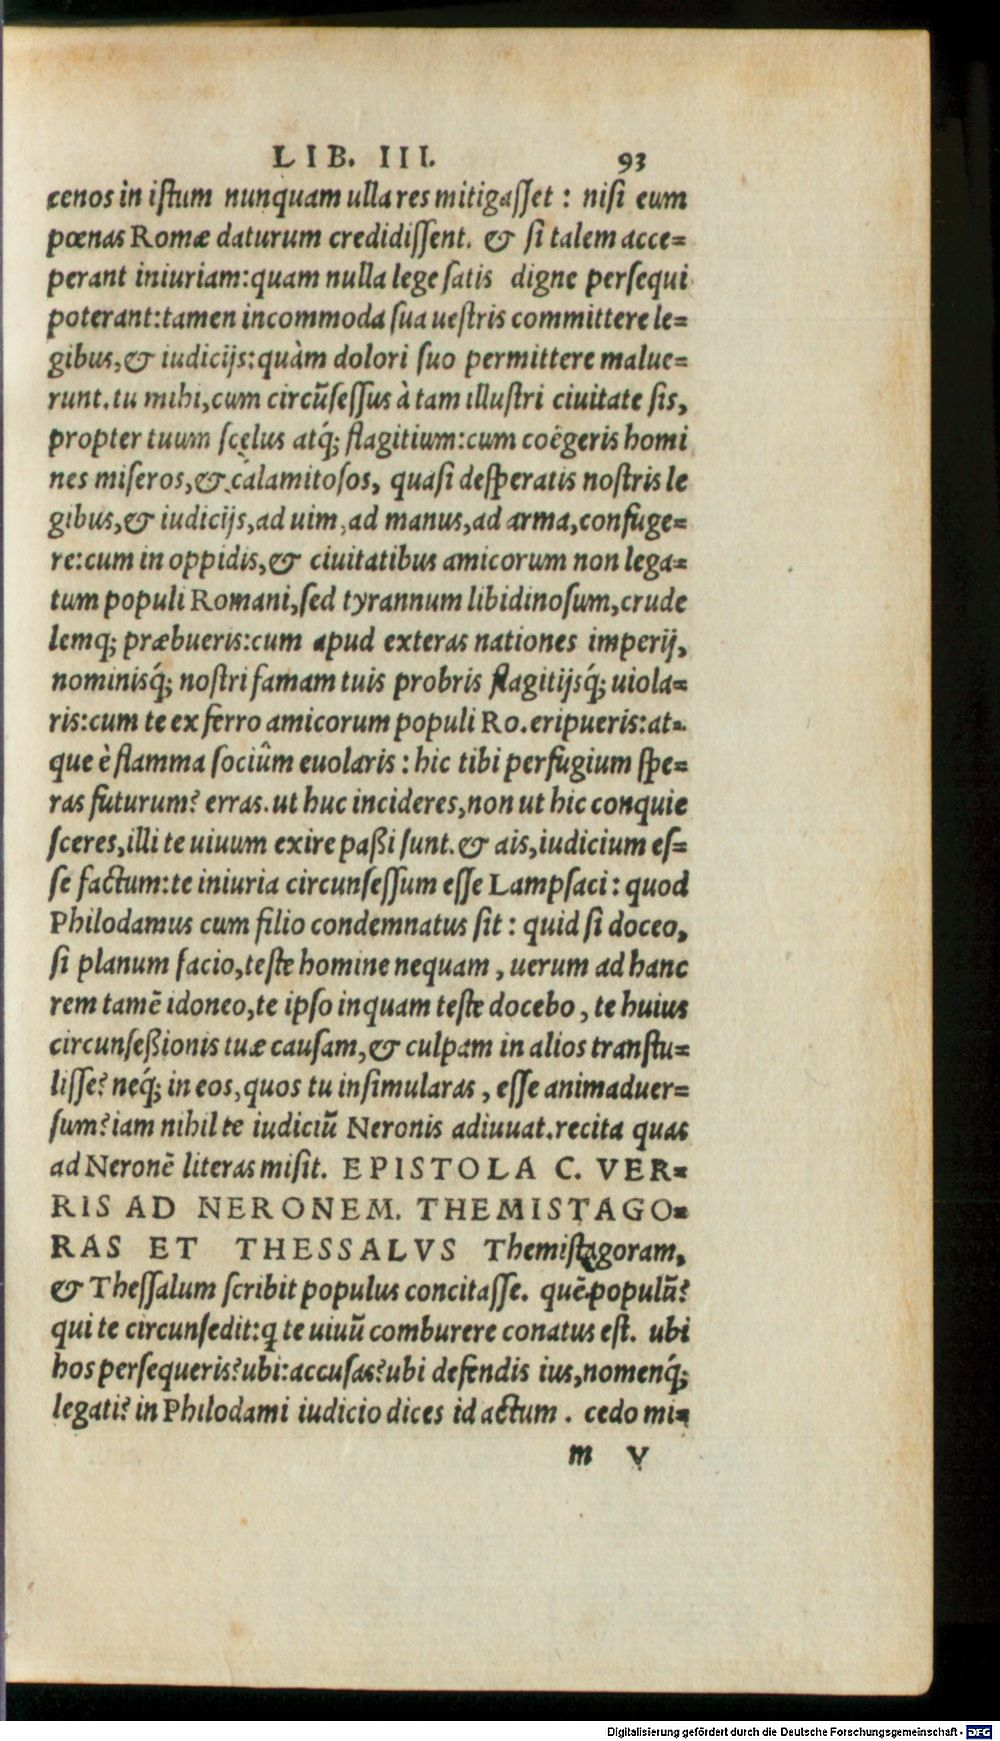 LIB. III. 93
cenos in istum nunquam ulla res mitigasset : nisi eum
pœnas Romæ daturum credidissent. & si talem acce=
perant iniuriam:quam nulla lege satis digne persequi
poterant:tamen incommoda sua uestris committere le=
gibus,& iudicijs:quàm dolori suo permittere malue=
runt.tu mihi,cum circũsessus à tam illustri ciuitate sis,
propter tuum scelus atq́; flagitium:cum coëgeris homi
nes miseros,& calamitosos, quasi desperatis nostris le
gibus,& iudicijs,ad uim,ad manus,ad arma,confuge=
re:cum in oppidis,& ciuitatibus amicorum non lega=
tum populi Romani,sed tyrannum libidinosum,crude
lemq; præbueris:cum apud exteras nationes imperij,
nominisq́; nostri famam tuis probris flagitijsq́; uiola=
ris:cum te ex ferro amicorum populi Ro.eripueris:at=
que è flamma sociûm euolaris : hic tibi perfugium spe=
ras futurum? erras.ut huc incideres,non ut hic conquie
sceres,illi te uiuum exire paßi sunt.& ais,iudicium es=
se factum:te iniuria circunsessum esse Lampsaci : quod
Philodamus cum filio condemnatus sit : quid si doceo,
si planum facio,teste homine nequam , uerum ad hanc
rem tamẽ idoneo,te ipso inquam teste docebo , te huius
circunseßionis tuæ causam,& culpam in alios transtu=
lisse? neq́; in eos,quos tu insimularas , esse animaduer=
sum?iam nihil te iudiciũ Neronis adiuuat.recita quas
ad Neronẽ literas misit. EPISTOLA C. VER=
RIS AD NERONEM. THEMISTAGO=
RAS ET THESSALVS Themistagoram,
& Thessalum scribit populus concitasse. quẽ populũ?
qui te circunsedit:q te uiuũ comburere conatus est. ubi
hos persequeris?ubi:accusas?ubi defendis ius,nomenq́;
legati? in Philodami iudicio dices id actum . cedo mi=
m v
Digitalisierung gefördert durch die Deutsche Forschungsgemeinschaft - DFG